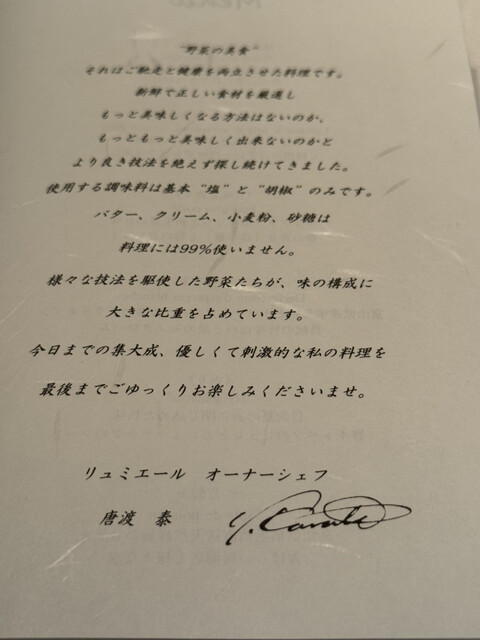 “野菜の美食”
それはご馳走と健康を両立させた料理です。
新鮮で正しい食材を厳選し
もっと美味しくなる方法はないのか、
もっともっと美味しく出来ないのかと
より良き技法を絶えず探し続けてきました。
使用する調味料は基本“塩”と“胡椒”のみです。
バター、クリーム、小麦粉、砂糖は
料理には99%使いません。
様々な技法を駆使した野菜たちが、味の構成に
大きな比重を占めています。
今日までの集大成、優しくて刺激的な私の料理を
最後までごゆっくりお楽しみくださいませ。
リュミエール オーナーシェフ
唐渡 泰